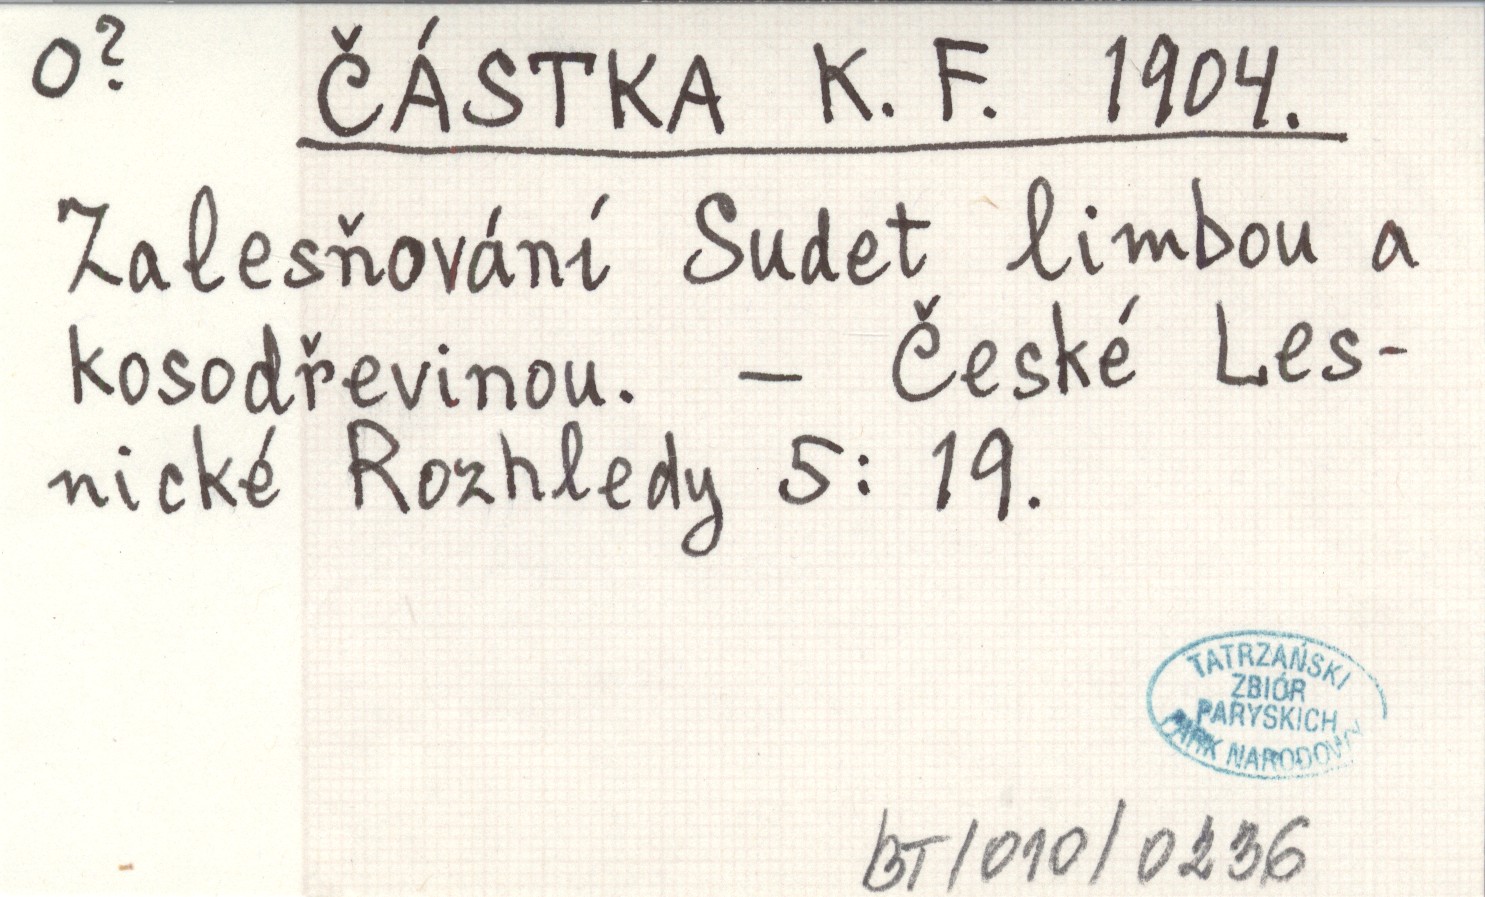 o?
ČÁSTKA K. F. 1904.
Zalesňování Sudet limbou a
kosodřevinou. – České Les-
nické Rozhledy 5: 19.
TATRZAŃSKI
ZBIÓR
PARYSKICH
PARK NARODOWY
BT/010/0236